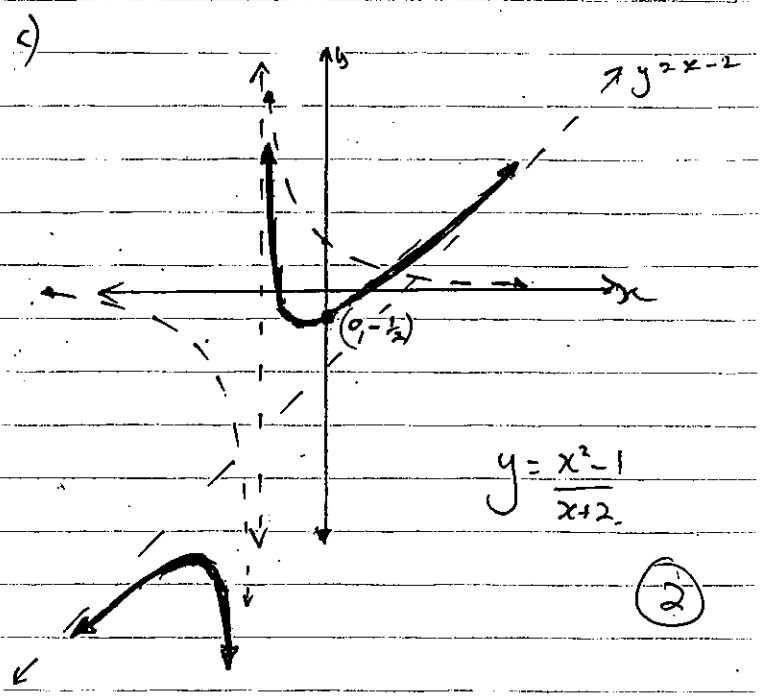 c)
y
y = x - 2
x
(0, -1/2)
y = x² - 1 / x + 2.
2